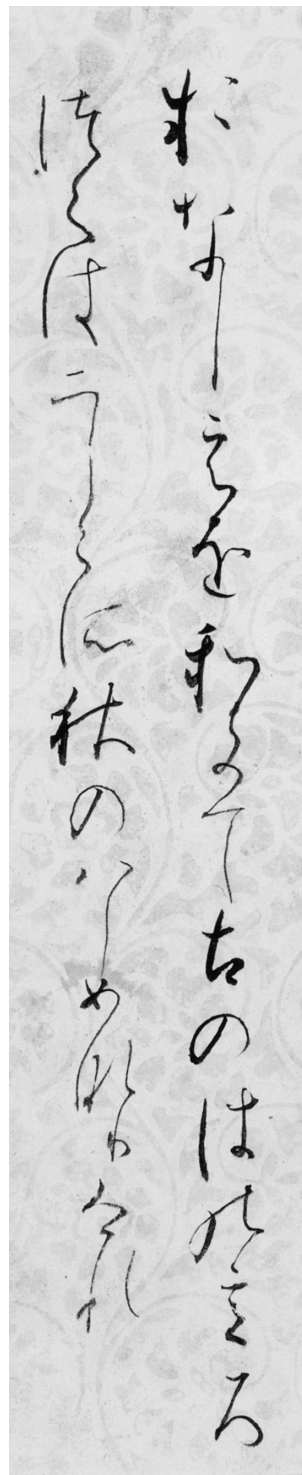 おなしえをわきてこのはのいろ
つくはにしこそ秋のはしめなりけれ